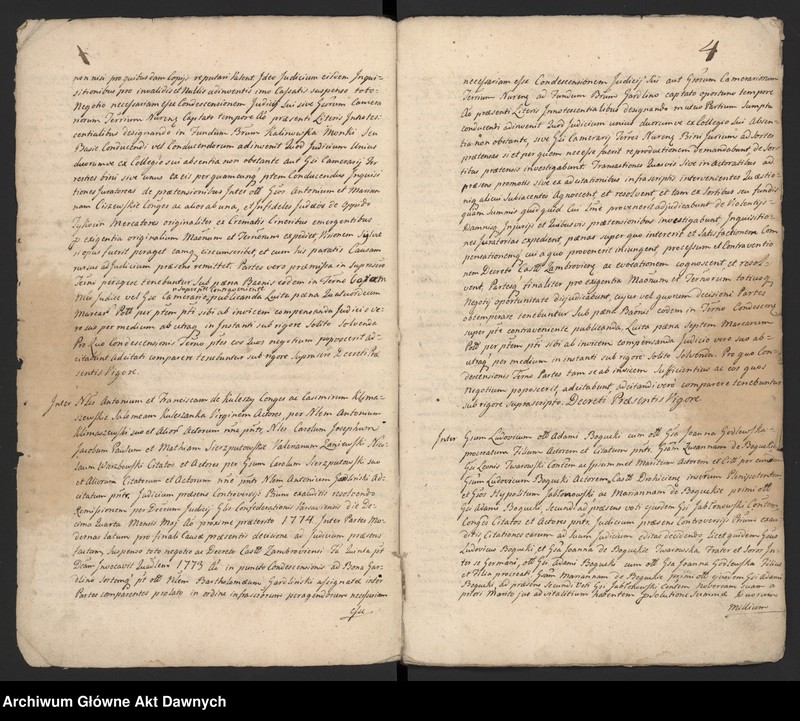 4
non nisi pro quibusdam Copijs reputari Patent Ideo Judicium eisdem Inqui-
sitionibus pro invalidis et Nullis adinventis imo Cassatis suspenso toto
Negotio necessariam esse Condescensionem Judicij Sui sive Gsorum Camera
riorum Terrium Nurens Captato tempore Ao præsenti Literis Innotes-
centialibus designando in Fundum Bnum Kalinowka Monki Seu
Basie Conducendi vel Conducendorum adinvenit Quod Judicium Unius
duorumve ex Collegio sui absentia non obstante aut Gsi Camerarij Ter
restres bini sive unus ex eis per quamcunq ptem Conducendus Inquisi
tiones Juratorias de prætensionibus Inter olim Gsos Antonium et Marian
nam Ciszewskie Conges ac alios ab una, et Infideles Judæos de Oppido
Tykocin Mercatores originaliter ex Crematis
exigentia originalium Maonum et Ternorum expediet, Visionem
si opus fuerit peraget eamq circumscribet, et cum his paratis Causam
rursus ad Judicium præsens remittet. Partes vero præmissa in Supremo
Teini peragere tenebuntur Sub pæna Banis eidem in Terno
nius Judice vel Gse Camerario publicanda Luita pæna Quatuordecim
Marcar Poll per ptem pti sibi ab invicem compensanda Judicio ve-
ro sua per medium ab utraq in Instanti sub rigore Solito Solvenda
Pro Quo Condescensionis Terno ptes eos Quos negotium poposcerit ad-
citabunt Adcitati comparere tenebuntur sub rigore Suprascro Decreti Præ
sentis Vigore.
Inter Nles Antonium et Franciscam de Kuleszy Conges ac Casimirum Klima-
szewskie Salomeam Kuleszanka Virginem Actores per Nlem Antonium
Klimaszewski suo et Alior Actorum nne pnte, Nles Carolum Josephum
Jacobum Paulum et Mathiam Sierzputowskie Valerianum Zaniewski Nico
laum Wnorowski Citatos et Actores per Gsum Carolum Sierzputowski suo
et Aliorum Citatorum et Actorum nne pnte Nlem Antonium Gardlinski Ad-
citatum pntr. Judicium præsens Controversijs Ptium exauditis resolvendo
Remissionem per Decrum Judicij Glis Confederationis Varsavien die De-
cima Quarta Mensis Maj Ao proxime præterito 1774. Inter Partes Mo-
dernas latum pro finali Causæ præsentis decisione ad Judicium præsens
factam, Suspenso toto negotio ac Decreto Castri Zambrovien Fa Quinta pst
Dnam Invocavit Quadlem 1773 Ai in puncto Condescensionis ad Bona Gar-
dlino Sortem pst olim Nlem Bartholomæum Gardlinski assignatæ inter
Partes comparentes prolato in ordine infrascriorum peragendorum necessariam
esse
4
necessariam esse Condescensionem Judicij Sui aut Gsorum Camerariorum
Terrium Nurens ad Fundum Bnum Gardlino captato oportuno tempore
Ao præsenti Literis Innotescentialibus designando mutuo Partium Sumptu
conducendi adinvenit Quod Judicium unius duorumve ex Collegio Sui Absen-
tia non obstante, sive Gsi Camerarij Terres Nurens Bini Jurium ad Sortes
prætensas si et per quem necesse fuerit reproductionem demandabunt de Sor-
titus prætensis investigabunt. Transactiones Quasvis Sive in Actoratibus ad
præsens promotis sive ex adcitationibus infrascriptis intervenientes Quæstio-
niq alicui Subiacentes Agnoscent et resolvent, et tam ex Sortibus seu fundis
quam Summis quid quid Cui Jure provenerit adjudicabunt de Violentijs
Damnisq Injurijs et Quibusvis prætensionibus investigabunt, Inquisitio-
nes Juratorias expedient, pænas super quo intererit et Satisfactionem Com
pensationemq cui a quo provenerit iniungent, processum et Contraventio
nem Decreto Castri Zambroviens ac evocationem cognoscent et resol-
vent, Partesq finaliter pro exigentia Maonum et Ternorum totiusq
Negotij oportunitate dijudicabunt, cujus vel quorum decisioni Partes
obtemperare tenebuntur Sub pæna Banis eodem in Terno Condescens
super pte contraveniente publicanda, Luita pæna Septem Marcarum
Poll per ptem pti sibi ab invicem compensanda Judicio vero suo ab-
utraq per medium in instanti sub rigore Solito Solvenda. Pro quo Con-
descensionis Terno Partes tam se ab invicem Sufficientius ac eos quos
negotium poposcerit, adcitabunt adcitandi vero comparere tenebuntur
Sub rigore Suprascripto. Decreti Præsentis Vigore
Inter Gsum Ludovicum olim Adami Bogucki cum olim Gsa Joanna Godlewska-
procreatum Filium Actorem et Citatum pntr. Gsam Zuzannam de Boguckie
Gsi Leonis Twarowski Contem ac ipsummet Maritum Actorem et Citt per eundem
Gsum Ludovicum Bogucki Actorem, Castri Drohiciens insertum Plenipotentem
et Gsos Hyppolitum Jabłonowski ac Mariannam de Boguckie primi olim
Gsi Adami Bogucki, Secundi ad præsens voti ejusdem Gsi Jabłkowski Contem
Conges Citatos et Actores pntr. Judicium præsens Controversijs Ptium exau
ditis Citationes earum ad Suum Judicium editas decidendo licet quidem Gsus
Ludovicus Bogucki et Gsa Joanna de Boguckie Twarowska Frater et Soror In-
ter se Germani, olim Gsi Adami Bogucki cum olim Gsa Joanna Godlewska Filius
et Filia procreati, Gsam Mariannam de Boguckie primi olim ejusdem Gsi Adami
Bogucki, ad præsens Secundi Voti Gsi Jabłkowski Contem Novercam Suam a
priori Marito jus advitalitium habentem Persolutione Summæ Quorum
medium
Archiwum Główne Akt Dawnych